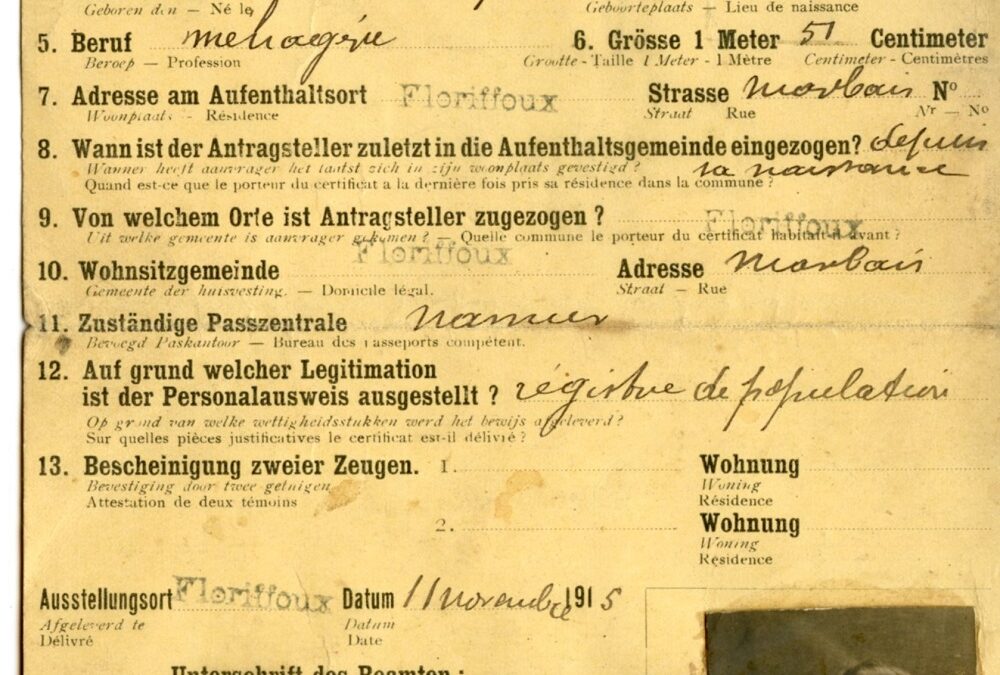 Geboren den — Né le
Geboorteplaats — Lieu de naissance
5. Beruf menagère 6. Grösse 1 Meter 51 Centimeter
Beroep — Profession Grootte - Taille 1 Meter - 1 Mètre Centimeter - Centimètres
7. Adresse am Aufenthaltsort Floriffoux Strasse Morbais Nº
Woonplaats - Résidence Straat Rue Nr — Nº
8. Wann ist der Antragsteller zuletzt in die Aufenthaltsgemeinde eingezogen? depuis
Wanneer heeft aanvrager het laatst zich in zijn woonplaats gevestigd? sa naissance
Quand est-ce que le porteur du certificat a la dernière fois pris sa résidence dans la commune ?
9. Von welchem Orte ist Antragsteller zugezogen ? Floriffoux
Uit welke gemeente is aanvrager gekomen ? — Quelle commune le porteur du certificat habitait-il avant ?
10. Wohnsitzgemeinde Floriffoux Adresse Morbais
Gemeente der huisvesting. — Domicile légal. Straat — Rue
11. Zuständige Passzentrale Namur
Bevoegd Paskantoor — Bureau des passeports compétent.
12. Auf grund welcher Legitimation
ist der Personalausweis ausgestellt ? régistre de population
Op grond van welke wettigheidsstukken werd het bewijs afgeleverd?
Sur quelles pièces justificatives le certificat est-il délivré ?
13. Bescheinigung zweier Zeugen. 1. Wohnung
Bevestiging door twee getuigen Woning
Attestation de deux témoins Résidence
2. Wohnung
Woning
Résidence
Ausstellungsort Floriffoux Datum 11 novembre 1915
Afgeleverd te Datum
Délivré Date
Unterschrift des Beamten :